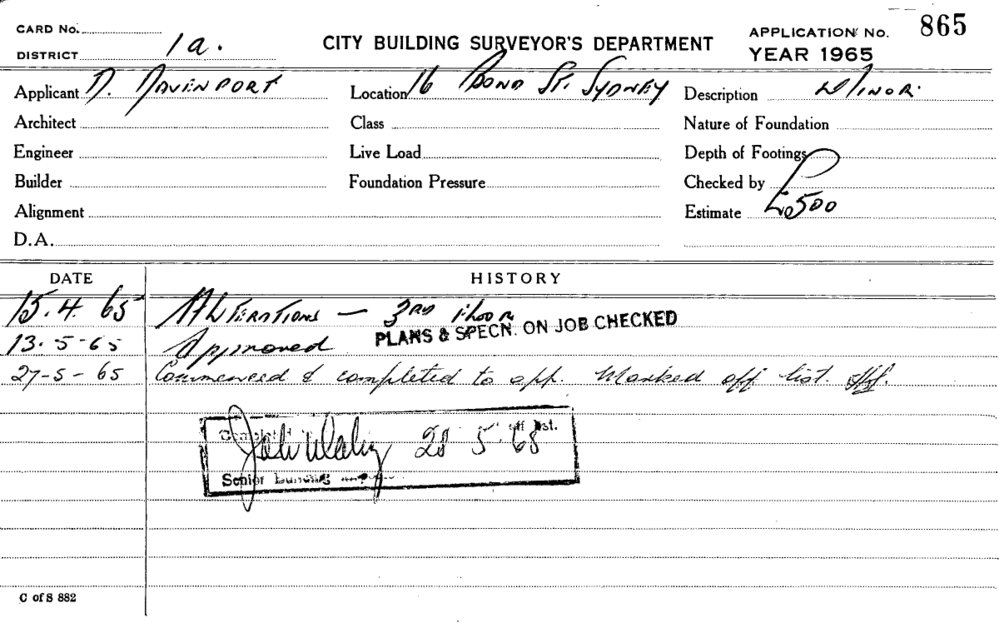 CARD No. APPLICATION No. 865
DISTRICT 1a. CITY BUILDING SURVEYOR'S DEPARTMENT YEAR 1965
Applicant D. DAVENPORT Location 16 BOND ST. SYDNEY Description MINOR.
Architect Class Nature of Foundation
Engineer Live Load Depth of Footings
Builder Foundation Pressure Checked by
Alignment Estimate £0500
D.A.
DATE HISTORY
15.4.65 ALTERATIONS — 3RD FLOOR
PLANS & SPECN. ON JOB CHECKED
13-5-65 Approved
27-5-65 Commenced & completed to app. Marked off list.
off list.
28 5 65
Senior Building
C of S 882